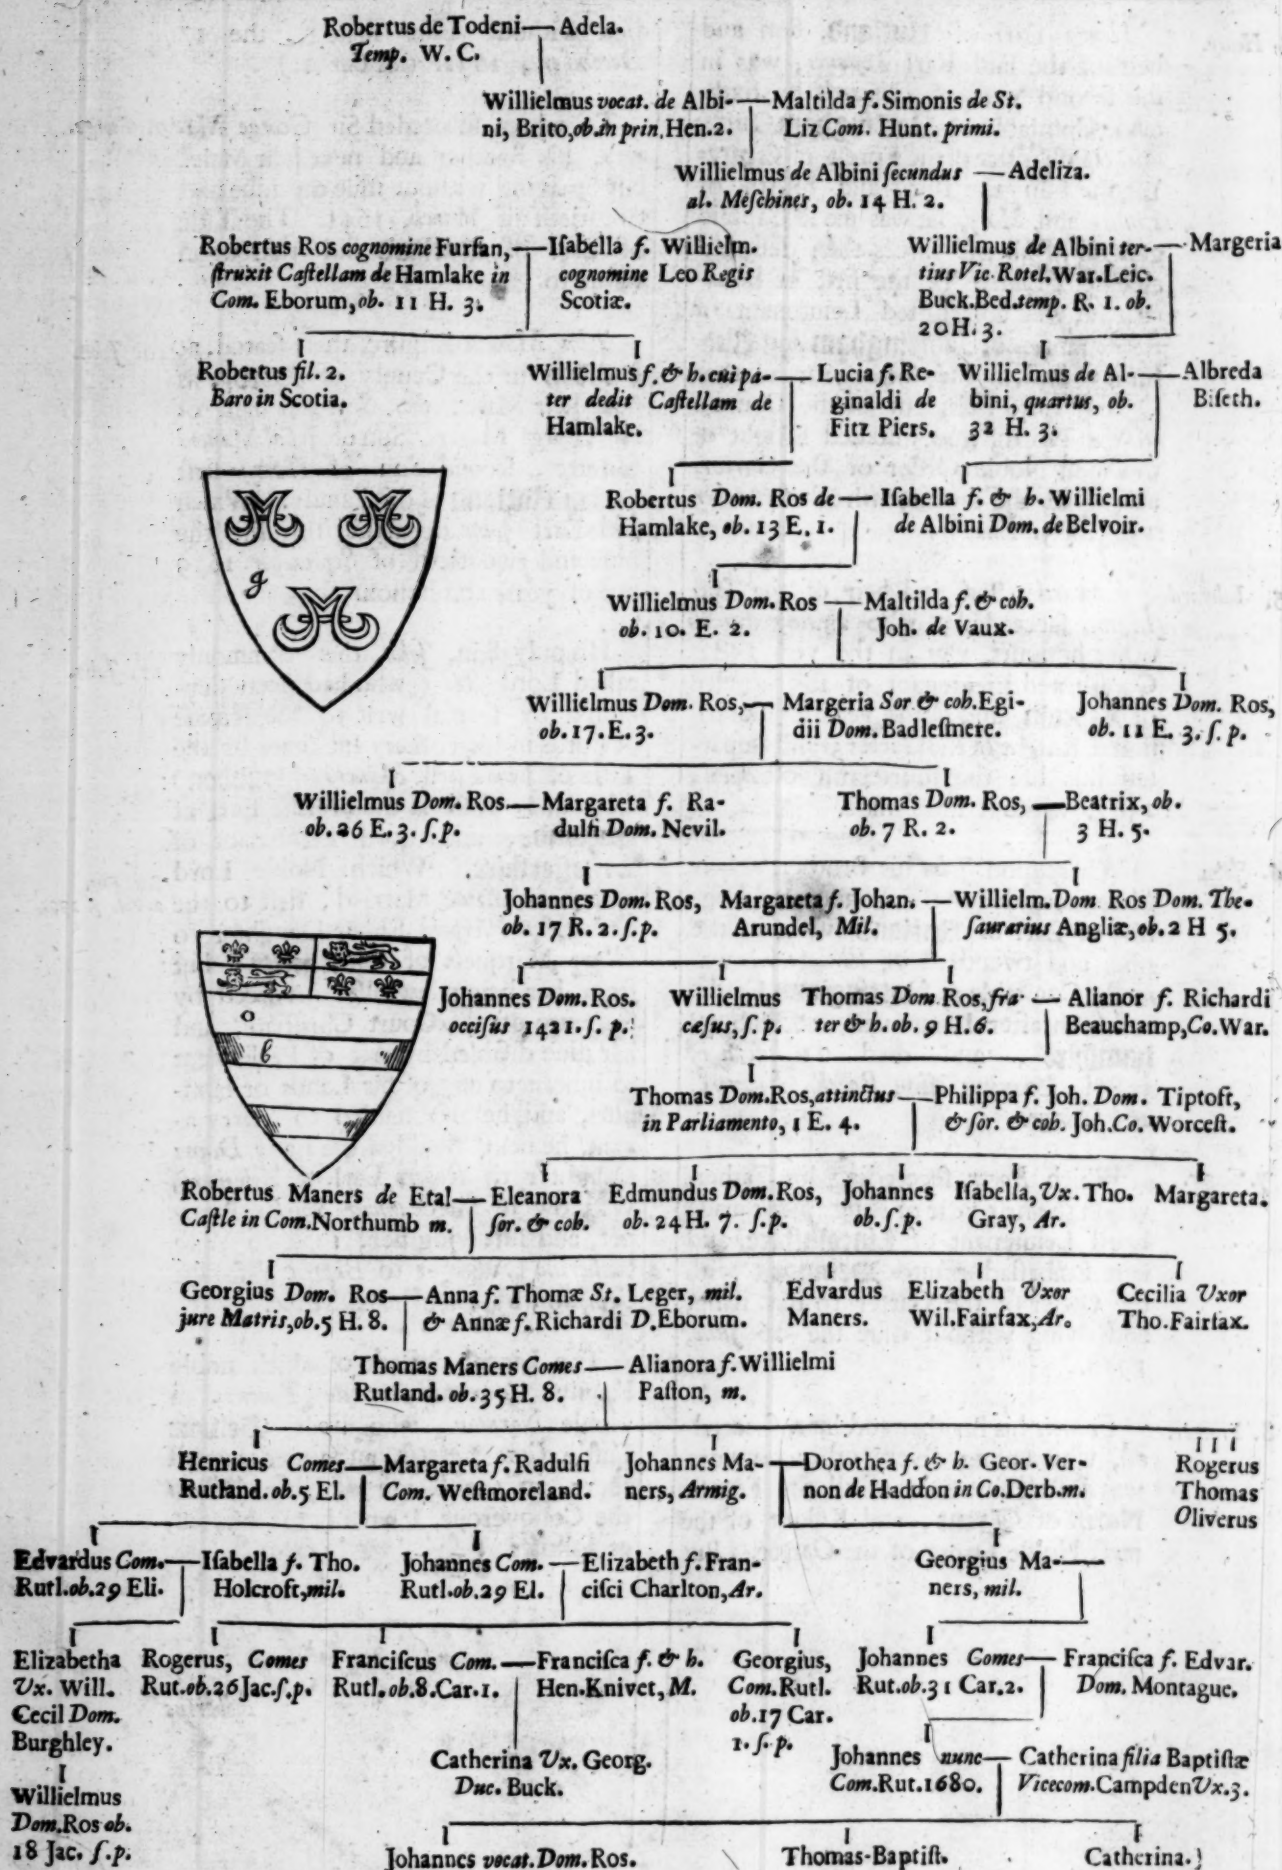 Robertus de Todeni — Adela.
Temp. W. C.
Willielmus vocat. de Albi-
ni, Brito, ob. in prin. Hen. 2.
Maltilda f. Simonis de St.
Liz Com. Hunt. primi.
Willielmus de Albini ſecundus — Adeliza.
al. Meſchines, ob. 14 H. 2.
Robertus Ros cognomine Furſan,
ſtruxit Caſtellam de Hamlake in
Com. Eborum, ob. 11 H. 3.
Iſabella f. Willielm.
cognomine Leo Regis
Scotiæ.
Willielmus de Albini ter-
tius Vic. Rotel. War. Leic.
Buck. Bed. temp. R. 1. ob.
20 H. 3.
Margeria
Robertus fil. 2.
Baro in Scotia.
Willielmus f. & h. cui pa-
ter dedit Caſtellam de
Hamlake.
Lucia f. Re-
ginaldi de
Fitz Piers.
Willielmus de Al-
bini, quartus, ob.
32 H. 3.
Albreda
Biſeth.
Robertus Dom. Ros de
Hamlake, ob. 13 E. 1.
Iſabella f. & h. Willielmi
de Albini Dom. de Belvoir.
g
Willielmus Dom. Ros
ob. 10. E. 2.
Maltilda f. & coh.
Joh. de Vaux.
Willielmus Dom. Ros,
ob. 17. E. 3.
Margeria Sor. & coh. Egi-
dii Dom. Badleſmere.
Johannes Dom. Ros,
ob. 11 E. 3. ſ. p.
Willielmus Dom. Ros
ob. 26 E. 3. ſ. p.
Margareta f. Ra-
dulfi Dom. Nevil.
Thomas Dom. Ros,
ob. 7 R. 2.
Beatrix, ob.
3 H. 5.
Johannes Dom. Ros,
ob. 17 R. 2. ſ. p.
Margareta f. Johan.
Arundel, Mil.
Willielm. Dom Ros Dom. The-
ſaurarius Angliæ, ob. 2 H 5.
o
b
Johannes Dom. Ros.
occiſus 1421. ſ. p.
Willielmus
cæſus, ſ. p.
Thomas Dom Ros, fra-
ter & h. ob. 9 H. 6.
Alianor f. Richardi
Beauchamp, Co. War.
Thomas Dom. Ros, attinctus
in Parliamento, 1 E. 4.
Philippa f. Joh. Dom. Tiptoft,
& ſor. & coh. Joh. Co. Worceſt.
Robertus Maners de Etal
Caſtle in Com. Northumb m.
Eleanora
ſor. & coh.
Edmundus Dom. Ros,
ob. 24 H. 7. ſ. p.
Johannes
ob. ſ. p.
Iſabella, Ux. Tho.
Gray, Ar.
Margareta.
Georgius Dom. Ros
jure Matris, ob. 5 H. 8.
Anna f. Thomæ St. Leger, mil.
& Annæ f. Richardi D. Eborum.
Edvardus
Maners.
Elizabeth Uxor
Wil. Fairfax, Ar.
Cecilia Uxor
Tho. Fairfax.
Thomas Maners Comes
Rutland. ob. 35 H. 8.
Alianora f. Willielmi
Paſton, m.
Henricus Comes
Rutland. ob. 5 El.
Margareta f. Radulfi
Com. Weſtmoreland.
Johannes Ma-
ners, Armig.
Dorothea f. & h. Geor. Ver-
non de Haddon in Co. Derb. m.
Rogerus
Thomas
Oliverus
Edvardus Com.
Rutl. ob. 29 Eli.
Iſabella f. Tho.
Holcroft, mil.
Johannes Com.
Rutl. ob. 29 El.
Elizabeth f. Fran-
ciſci Charlton, Ar.
Georgius Ma-
ners, mil.
Elizabetha
Ux. Will.
Cecil Dom.
Burghley.
Rogerus, Comes
Rut. ob. 26 Jac. ſ. p.
Franciſcus Com.
Rutl. ob. 8. Car. 1.
Franciſca f. & h.
Hen. Knivet, M.
Georgius,
Com. Rutl.
ob. 17 Car.
1. ſ. p.
Johannes Comes
Rut. ob. 31 Car. 2.
Franciſca f. Edvar.
Dom. Montague.
Catherina Ux. Georg.
Duc. Buck.
Johannes nunc
Com. Rut. 1680.
Catherina filia Baptiſtæ
Vicecom. Campden Ux. 3.
Willielmus
Dom. Ros ob.
18 Jac. ſ. p.
Johannes vocat. Dom. Ros.
Thomas-Baptiſt.
Catherina.